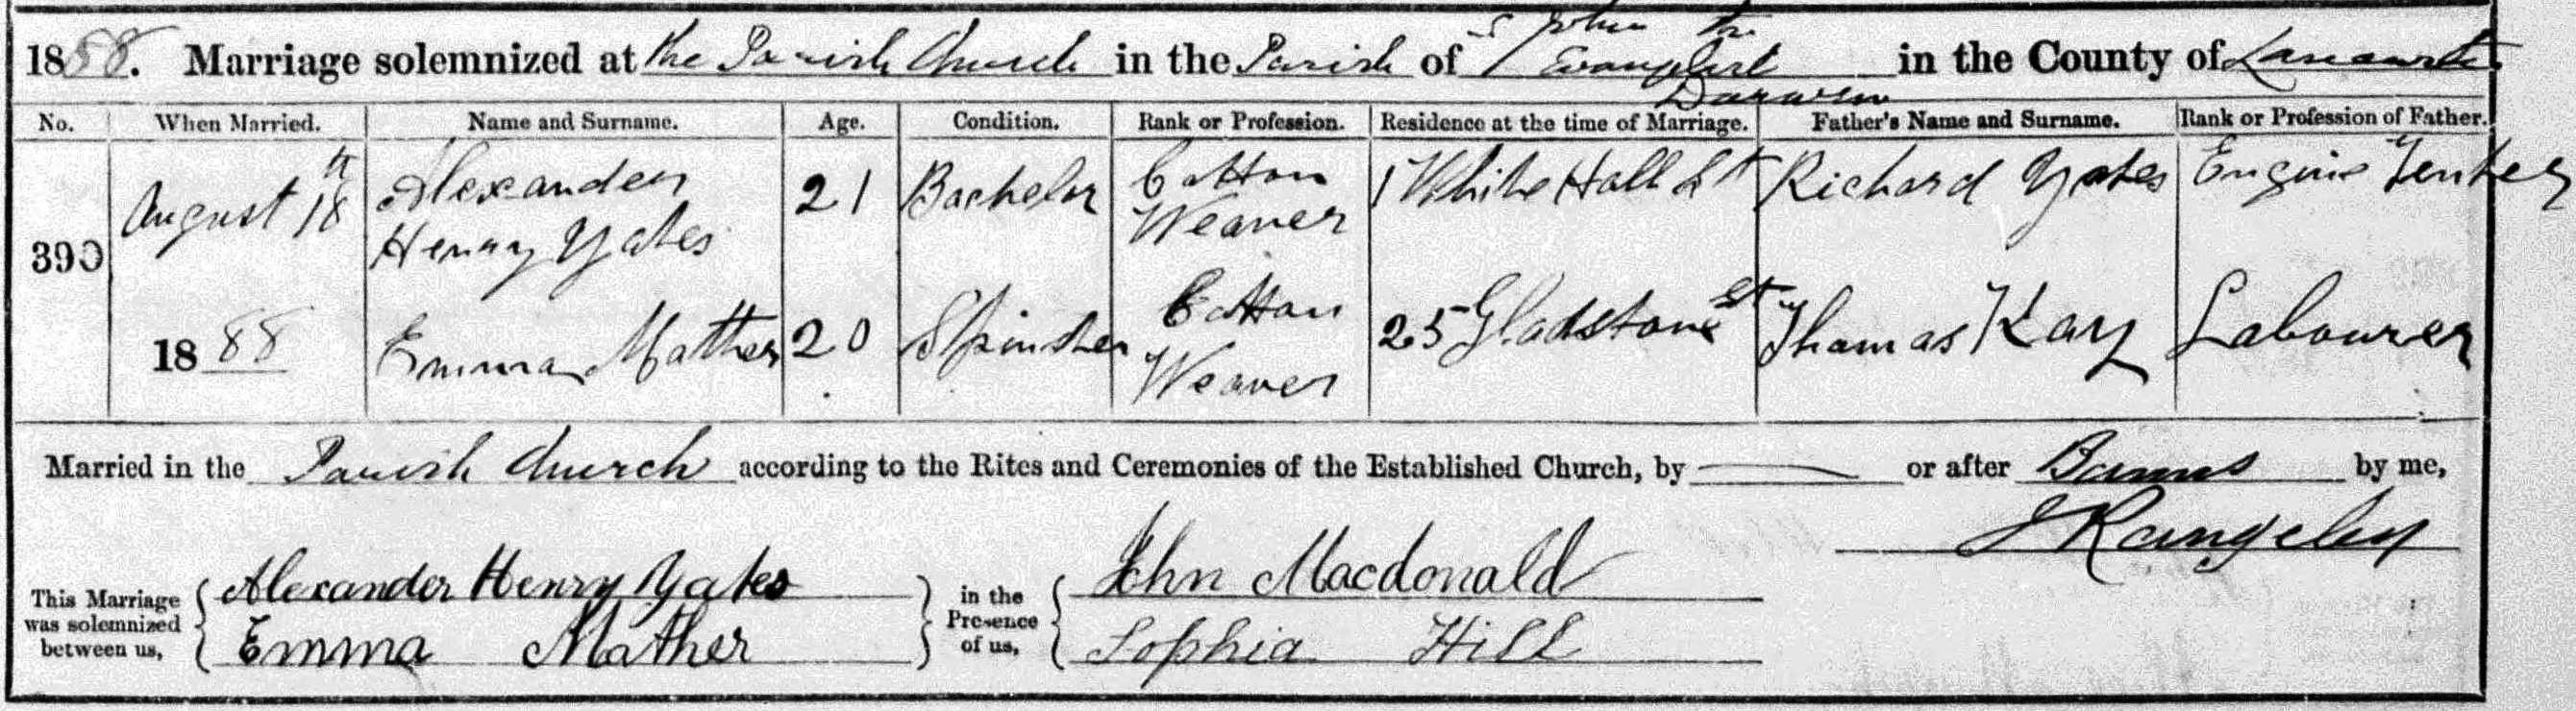 S John the
1888. Marriage solemnized at the Parish Church in the Parish of Evangelist in the County of Lancaster
Darwen
No. When Married. Name and Surname. Age. Condition. Rank or Profession. Residence at the time of Marriage. Father's Name and Surname. Rank or Profession of Father.
390 August 18th 1888 Alexander Henry Yates 21 Bachelor Cotton Weaver 1 White Hall St Richard Yates Engine Tenter
Emma Mather 20 Spinster Cotton Weaver 25 Gladstone St Thomas Kay Labourer
Married in the Parish Church according to the Rites and Ceremonies of the Established Church, by or after Banns by me,
This Marriage was solemnized between us, Alexander Henry Yates Emma Mather in the Presence of us, John Macdonald Sophia Hill